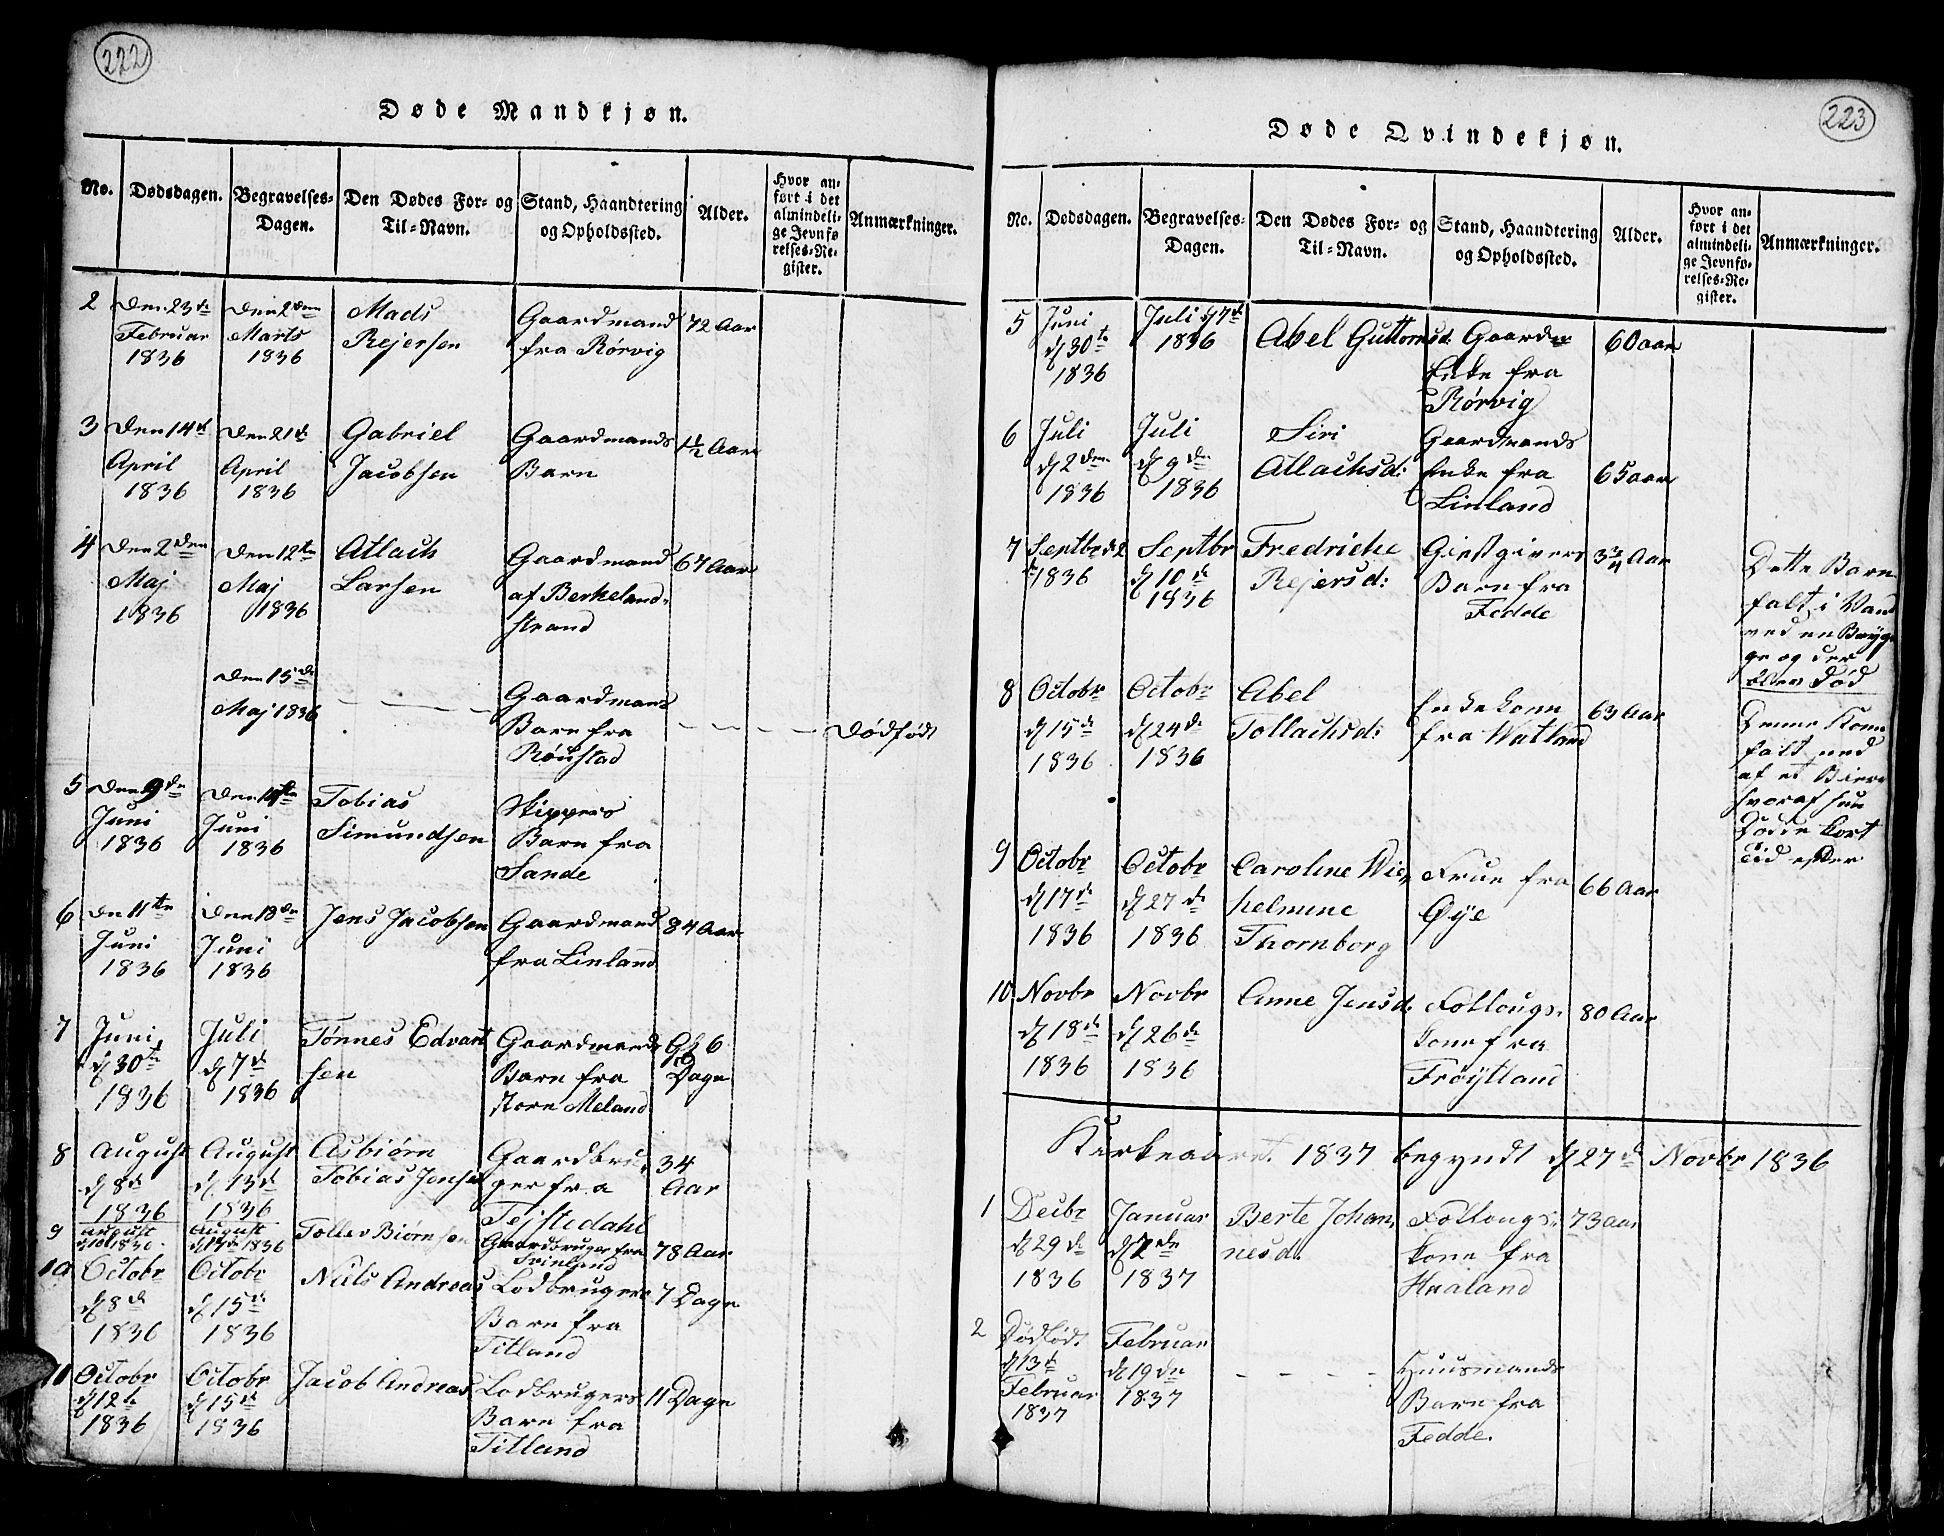 222
Døde Mandkjøn.
No.
Dødsdagen.
Begravelses-
Dagen.
Den Dødes For- og
Til-Navn.
Stand, Haandtering
og Opholdssted.
Alder.
Hvor an-
ført i det
almindeli-
ge Jevnfø
relses-Re-
gister.
Anmærkninger.
2
Den 23de
Februar
1836
Den 2den
Marts
1836
Mads
Rejersen
Gaardmand
fra Rørvig
72 Aar
3
Den 14de
April
1836
Den 21de
April
1836
Gabriel
Jacobsen
Gaardmands
Barn
1½ Aar
4
Den 2den
Maj
1836
Den 12te
Maj
1836
Atlach
Larsen
Gaardmand
af Berkeland-
strand
67 Aar
Den 15de
Maj 1836
Gaardmans
Barn fra
Røustad
Dødfødt
5
Den 9de
Juni
1836
Den
Juni
1836
Tobias
Simundsen
Skippers
Barn fra
Sande
6
Den 11te
Juni
1836
Den 18de
Juni
1836
Jens Jacobsen
Gaardmand
fra Linland
84 Aar
7
Juni
d 30te
1836
Juli
d 7de
1836
Tønnes Edvart
sen
Gaardmands
Barn fra
Store Meland
6
Dage
8
August
d 8de
1836
August
d 13de
1836
Asbiørn
Tobias Jensen
Gaardbru-
ger fra
Tejstedahl
34
Aar
9
August
d 10 1836
August
d 17de 1836
Tollev Biørnsen
Gaardbruger fra
Svinland
78 Aar
10
Octobr
d 8de
1836
Octobr
d 15de
1836
Niels Andreas
Lodbrugers
Barn fra
Titland
7 Dage
11
Octobr
d 12te
1836
Octobr
d 15de
1836
Jacob Andreas
Lodbrugers
Barn fra
Titland
11 Dage
223
Døde Qvindekjøn.
No.
Dødsdagen.
Begravelses-
Dagen.
Den Dødes For- og
Til-Navn.
Stand, Haandtering
og Opholdssted.
Alder.
Hvor an-
ført i det
almindeli-
ge Jevnfø-
relses-Re-
gister.
Anmærkninger.
5
Juni
d 30te
1836
Juli d 7de
1836
Abel Guttomsd:
Gaardm
Enke fra
Rørvig
60 aar
6
Juli
d 2den
1836
Juli
d 9den
1836
Siri
Atlachsd:
Gaardmands
Enke fra
Linland
65 aar
7
Septbr d 2
1836
Septbr
d 10de
1836
Fredricke
Rejersd:
Giestgivers
Barn fra
Fedde
3¾ Aar
Dette Barn
falt i Vand
ved en Bryg-
ge og der
blev Død
8
Octobr
d 15de
1836
Octobr
d 24de
1836
Abel
Tollachsd:
Enkekone
fra Watland
63 Aar
Denne Kone
falt ned
af et Bierg
hvoraf hun
Døde kort
tid efter
9
Octobr
d 17de
1836
Octobr
d 27de
1836
Caroline Wil-
helmine
Thornborg
Frue fra
Øye
66 Aar
10
Novbr
d 18de
1836
Novbr
d 26de
1836
Anne Jensd:
Follougs-
kone fra
Frøytland
80 Aar
Kirkeaaret 1837 begyndt d 27de Novbr 1836
1
Decbr
d 29de
1836
Januar
d 7de
1837
Berte Johan-
nesd:
Follougs-
kone fra
Haaland
73 aar
2
Dødfødt
d 13de
Februar
1837
Februar
d 19de
1837
Huusmands
Barn fra
Fedde.